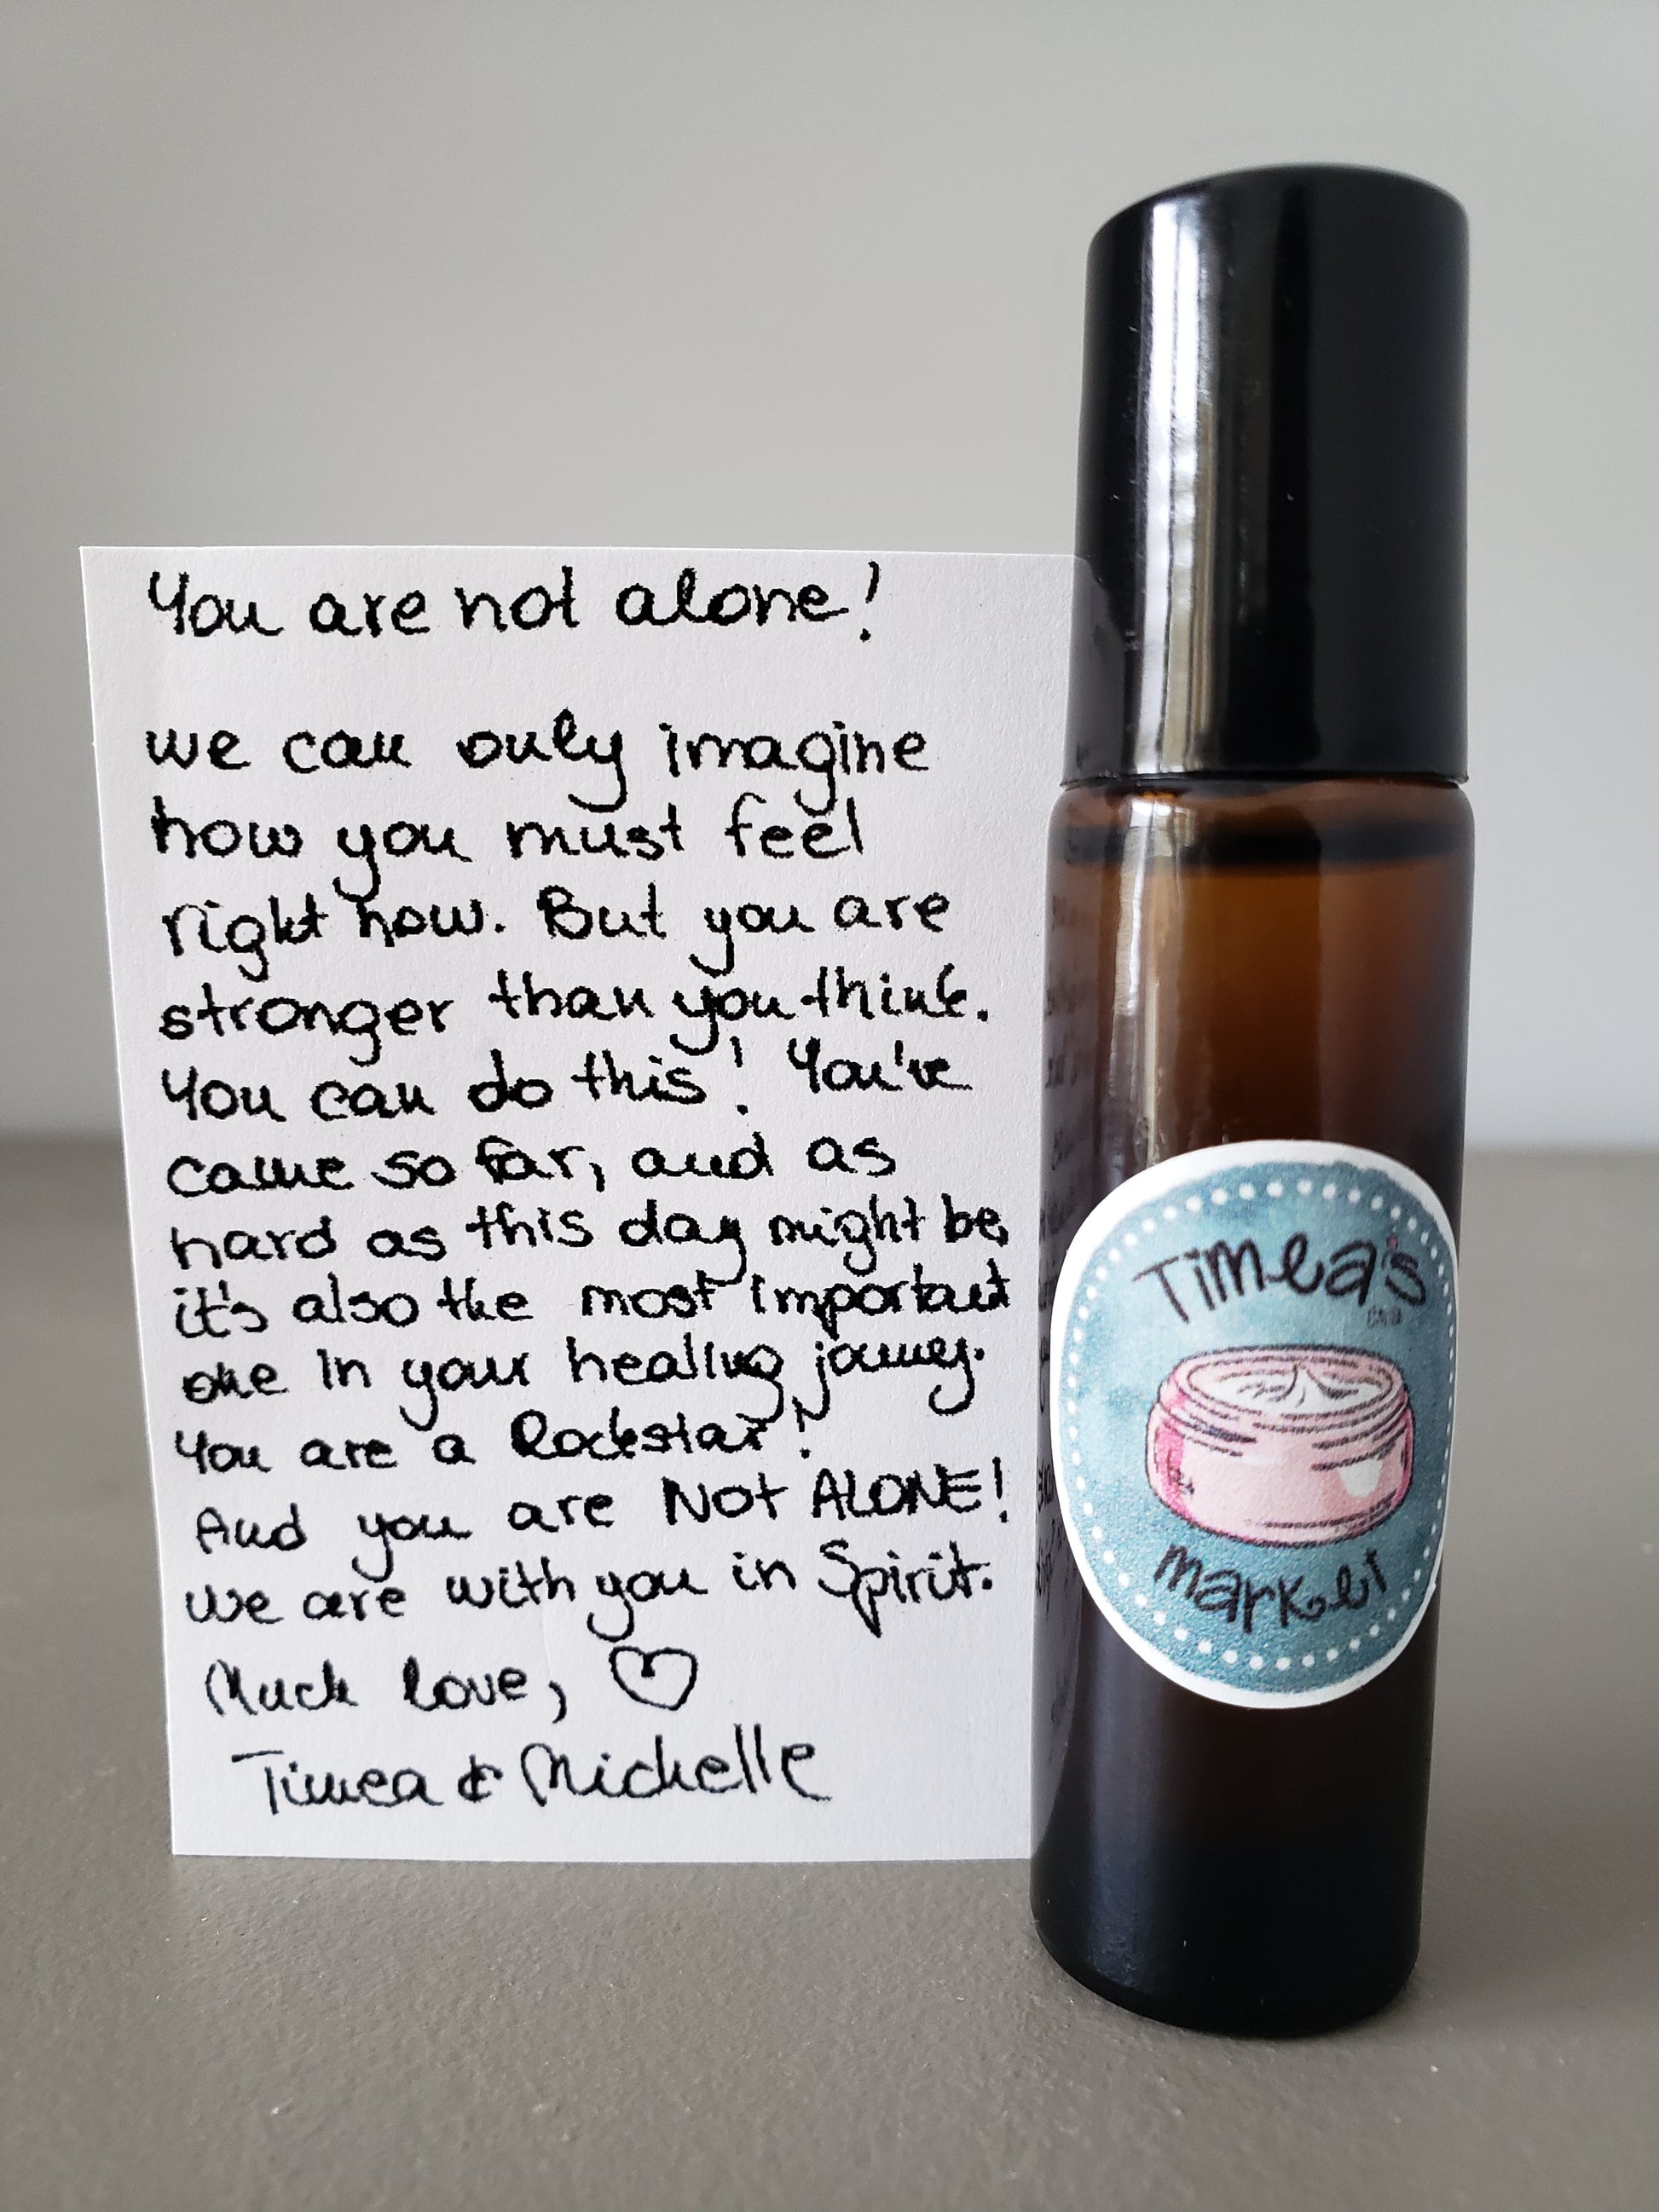 You are not alone!
we can only imagine
how you must feel
right now. But you are
stronger than you think.
You can do this! You've
came so far, and as
hard as this day might be,
it's also the most important
one in your healing journey.
You are a Rockstar!
And you are NOT ALONE!
we are with you in Spirit.
Much love, ♡
Timea & Michelle
Timea's
Market